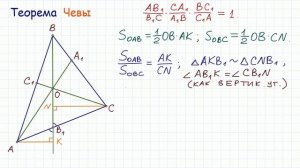 Теорема Чевы
AB₁/B₁C · CA₁/A₁B · BC₁/C₁A = 1
S_OAB = 1/2 OB·AK ; S_OBC = 1/2 OB·CN.
S_OAB/S_OBC = AK/CN ; △AKB₁ ~ △CNB₁ ,
∠AB₁K = ∠CB₁N
(КАК ВЕРТИК. УГ.)
B
A₁
C₁
O
N
C
B₁
A
K